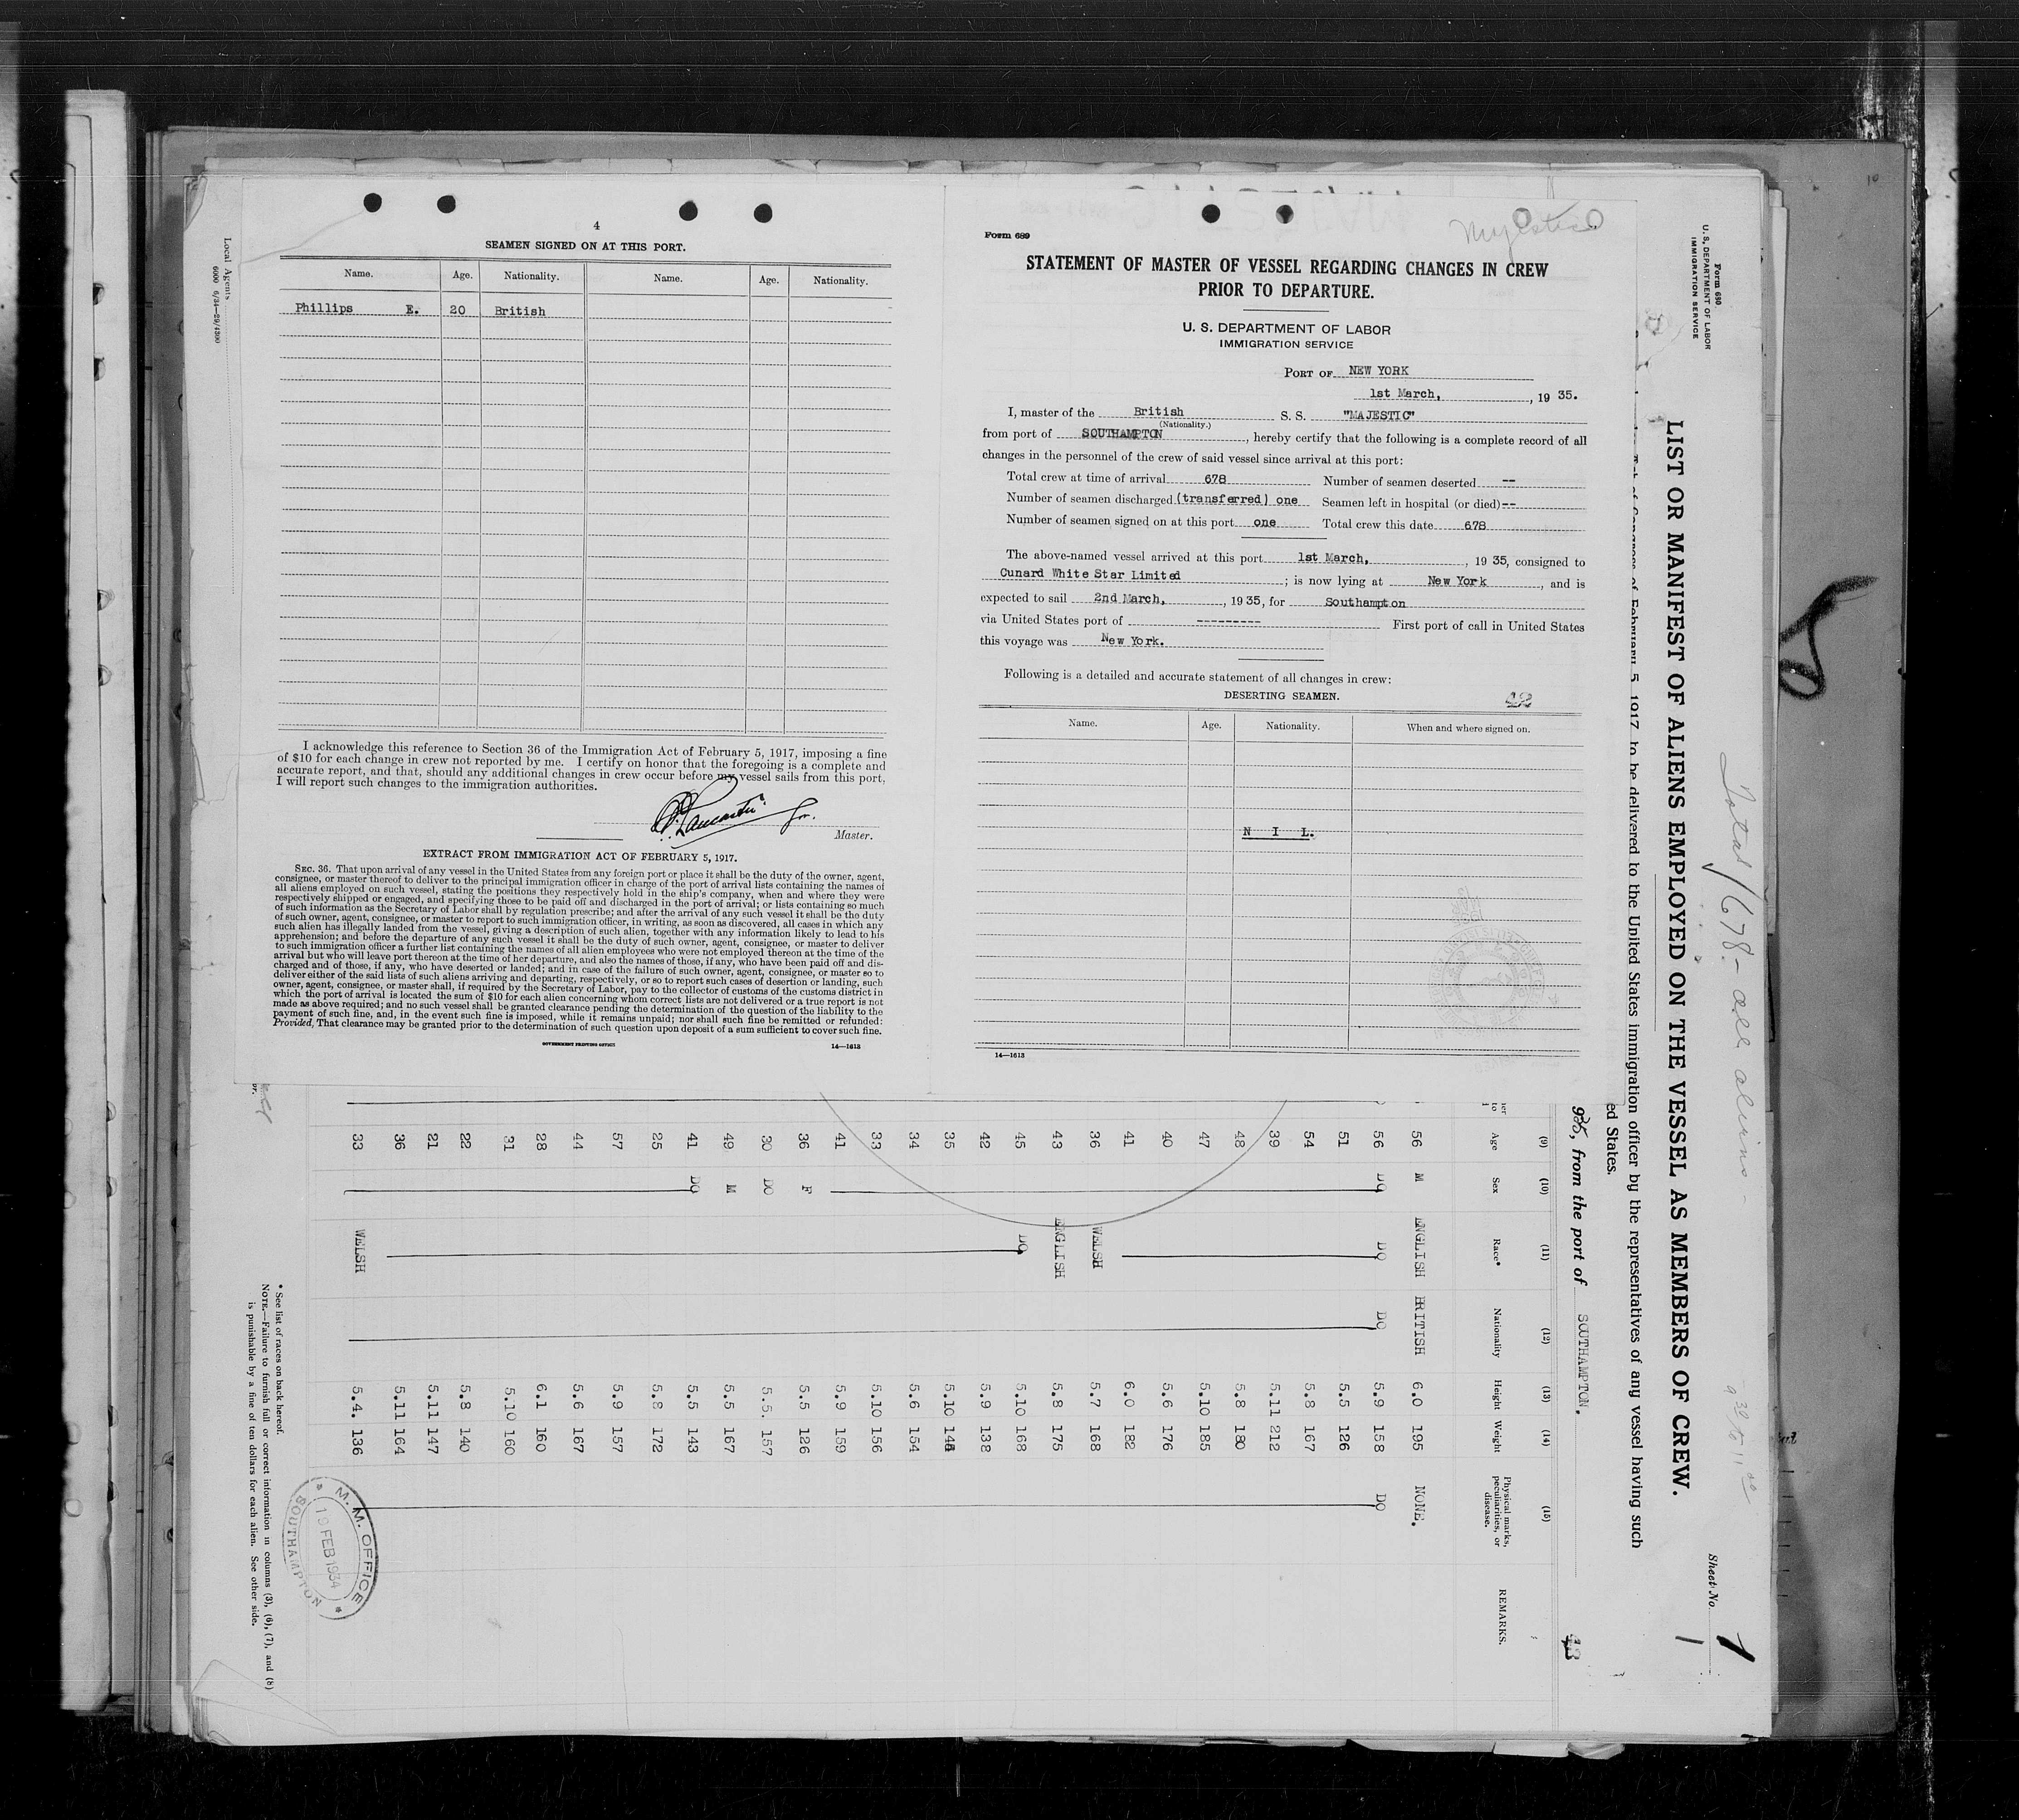 4
SEAMEN SIGNED ON AT THIS PORT.
Name. Age. Nationality. Name. Age. Nationality.
Phillips E. 20 British
I acknowledge this reference to Section 36 of the Immigration Act of February 5, 1917, imposing a fine
of $10 for each change in crew not reported by me. I certify on honor that the foregoing is a complete and
accurate report, and that, should any additional changes in crew occur before my vessel sails from this port,
I will report such changes to the immigration authorities.
Master.
EXTRACT FROM IMMIGRATION ACT OF FEBRUARY 5, 1917.
SEC. 36. That upon arrival of any vessel in the United States from any foreign port or place it shall be the duty of the owner, agent,
consignee, or master thereof to deliver to the principal immigration officer in charge of the port of arrival lists containing the names of
all aliens employed on such vessel, stating the positions they respectively hold in the ship's company, when and where they were
respectively shipped or engaged, and specifying those to be paid off and discharged in the port of arrival; or lists containing so much
of such information as the Secretary of Labor shall by regulation prescribe; and after the arrival of any such vessel it shall be the duty
of such owner, agent, consignee, or master to report to such immigration officer, in writing, as soon as discovered, all cases in which any
such alien has illegally landed from the vessel, giving a description of such alien, together with any information likely to lead to his
apprehension; and before the departure of any such vessel it shall be the duty of such owner, agent, consignee, or master to deliver
to such immigration officer a further list containing the names of all alien employees who were not employed thereon at the time of the
arrival but who will leave port thereon at the time of her departure, and also the names of those, if any, who have been paid off and dis-
charged and of those, if any, who have deserted or landed; and in case of the failure of such owner, agent, consignee, or master so to
deliver either of the said lists of such aliens arriving and departing, respectively, or so to report such cases of desertion or landing, such
owner, agent, consignee, or master shall, if required by the Secretary of Labor, pay to the collector of customs of the customs district in
which the port of arrival is located the sum of $10 for each alien concerning whom correct lists are not delivered or a true report is not
made as above required; and no such vessel shall be granted clearance pending the determination of the question of the liability to the
payment of such fine, and, in the event such fine is imposed, while it remains unpaid; nor shall such fine be remitted or refunded:
Provided, That clearance may be granted prior to the determination of such question upon deposit of a sum sufficient to cover such fine.
GOVERNMENT PRINTING OFFICE 14—1613
Local Agents
Form 689
Majestic
STATEMENT OF MASTER OF VESSEL REGARDING CHANGES IN CREW
PRIOR TO DEPARTURE.
U. S. DEPARTMENT OF LABOR
IMMIGRATION SERVICE
PORT OF NEW YORK
1st March, , 19 35.
I, master of the British S. S. "MAJESTIC"
(Nationality.)
from port of SOUTHAMPTON , hereby certify that the following is a complete record of all
changes in the personnel of the crew of said vessel since arrival at this port:
Total crew at time of arrival 678 Number of seamen deserted --
Number of seamen discharged (transferred) one Seamen left in hospital (or died) --
Number of seamen signed on at this port one Total crew this date 678
The above-named vessel arrived at this port 1st March, , 19 35, consigned to
Cunard White Star Limited ; is now lying at New York , and is
expected to sail 2nd March, , 19 35, for Southampton
via United States port of --------- First port of call in United States
this voyage was New York.
Following is a detailed and accurate statement of all changes in crew:
DESERTING SEAMEN.
Name. Age. Nationality. When and where signed on.
N I L.
14—1613
Form 680
U. S. DEPARTMENT OF LABOR
IMMIGRATION SERVICE
Total 678 - all aliens -
Sheet No. 1
LIST OR MANIFEST OF ALIENS EMPLOYED ON THE VESSEL AS MEMBERS OF CREW.
Act of Congress of February 5, 1917, to be delivered to the United States immigration officer by the representatives of any vessel having such
ed States.
, from the port of SOUTHAMPTON.
(9) (10) (11) (12) (13) (14) (15)
Age Sex Race* Nationality Height Weight Physical marks, peculiarities, or disease. REMARKS.
56 M ENGLISH BRITISH 6.0 195 NONE.
56 DO DO DO 5.9 158 DO
51 5.5 126
54 5.8 167
39 5.11 212
48 5.8 180
47 5.10 185
40 5.6 176
41 6.0 182
36 WELSH 5.7 168
43 ENGLISH 5.8 175
45 DO 5.10 168
42 5.9 138
35 5.10
34 5.6 154
33 5.10 156
41 5.9 159
36 F 5.5 126
30 DO 5.5. 157
49 M 5.5 167
41 DO 5.5 143
25 5.8 172
57 5.9 157
44 5.6 167
28 6.1 160
31 5.10 160
22 5.8 140
21 5.11 147
36 5.11 164
33 WELSH 5.4. 136
M. M. OFFICE
19 FEB 1934
SOUTHAMPTON
* See list of races on back hereof.
NOTE.—Failure to furnish full or correct information in columns (3), (6), (7), and (8)
is punishable by a fine of ten dollars for each alien. See other side.